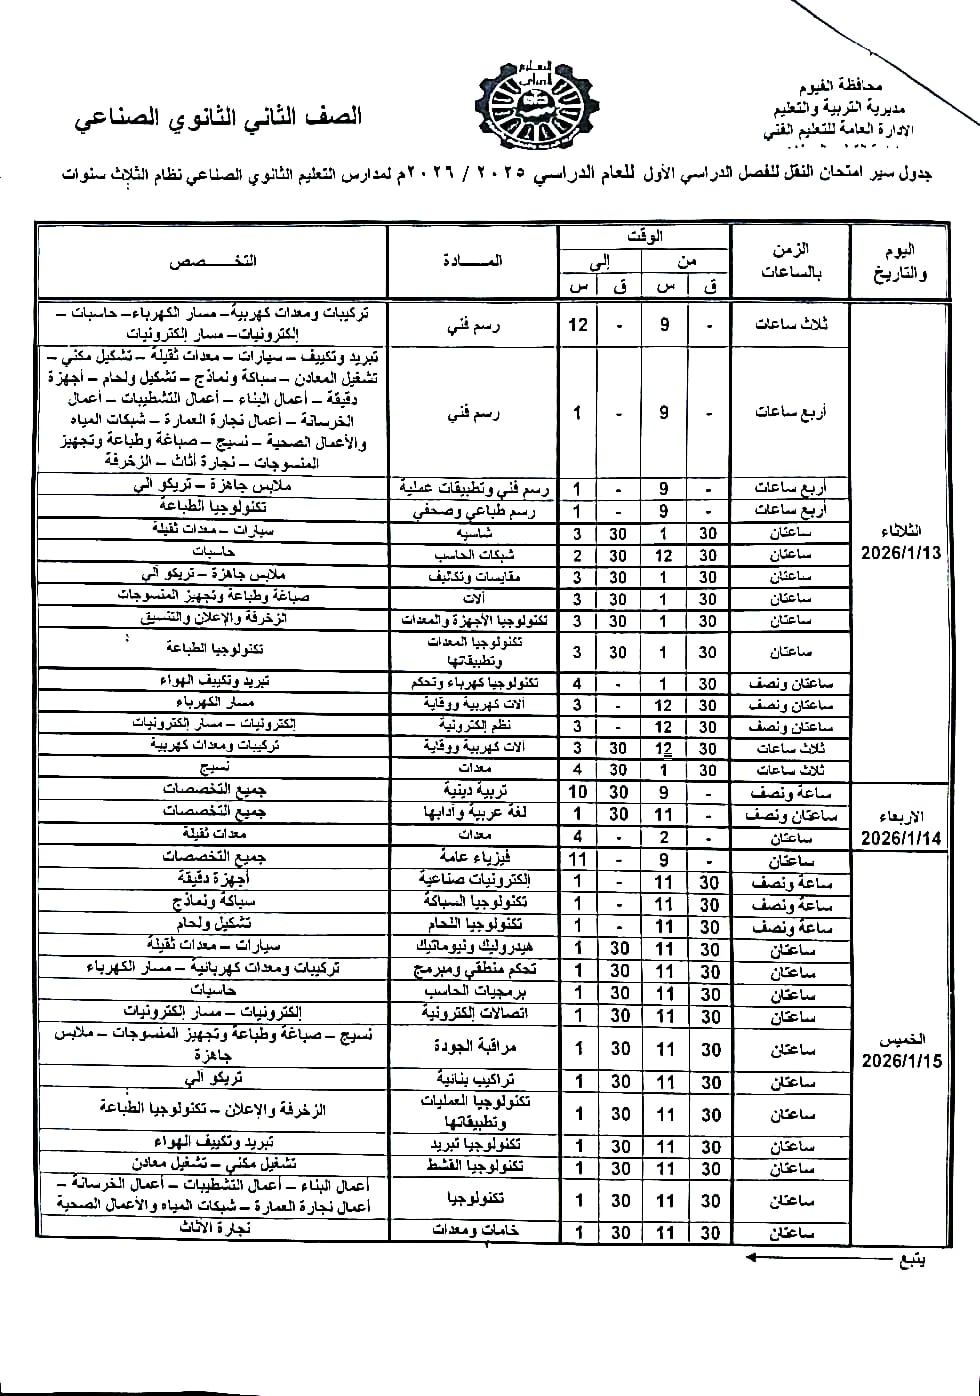 محافظة الفيوم
مديرية التربية والتعليم
الادارة العامة للتعليم الفني
التعليم
الصف الثاني الثانوي الصناعي
جدول سير امتحان النقل للفصل الدراسي الأول للعام الدراسي ٢٠٢٥ / ٢٠٢٦م لمدارس التعليم الثانوي الصناعي نظام الثلاث سنوات
اليوم والتاريخ | الزمن بالساعات | الوقت | المــــادة | التخــصص
من | إلى
ق | س | ق | س
الثلاثاء 2026/1/13
ثلاث ساعات | - | 9 | - | 12 | رسم فني | تركيبات ومعدات كهربية– مسار الكهرباء– حاسبات –
إلكترونيات– مسار إلكترونيات
أربع ساعات | - | 9 | - | 1 | رسم فني | تبريد وتكييف – سيارات – معدات ثقيلة – تشكيل مكني –
تشغيل المعادن – سباكة ونماذج – تشكيل ولحام – أجهزة
دقيقة – أعمال البناء – أعمال التشطيبات – أعمال
الخرسانة – أعمال نجارة العمارة – شبكات المياه
والأعمال الصحية – نسيج – صباغة وطباعة وتجهيز
المنسوجات – نجارة أثاث – الزخرفة
أربع ساعات | - | 9 | - | 1 | رسم فني وتطبيقات عملية | ملابس جاهزة – تريكو آلي
أربع ساعات | - | 9 | - | 1 | رسم طباعي وصحفي | تكنولوجيا الطباعة
ساعتان | 30 | 1 | 30 | 3 | شاسيه | سيارات – معدات ثقيلة
ساعتان | 30 | 12 | 30 | 2 | شبكات الحاسب | حاسبات
ساعتان | 30 | 1 | 30 | 3 | مقايسات وتكاليف | ملابس جاهزة – تريكو آلي
ساعتان | 30 | 1 | 30 | 3 | آلات | صباغة وطباعة وتجهيز المنسوجات
ساعتان | 30 | 1 | 30 | 3 | تكنولوجيا الأجهزة والمعدات | الزخرفة والإعلان والتنسيق
ساعتان | 30 | 1 | 30 | 3 | تكنولوجيا المعدات وتطبيقاتها | تكنولوجيا الطباعة
ساعتان ونصف | 30 | 1 | - | 4 | تكنولوجيا كهرباء وتحكم | تبريد وتكييف الهواء
ساعتان ونصف | 30 | 12 | - | 3 | آلات كهربية ووقاية | مسار الكهرباء
ساعتان ونصف | 30 | 12 | - | 3 | نظم إلكترونية | إلكترونيات – مسار إلكترونيات
ثلاث ساعات | 30 | 12 | 30 | 3 | آلات كهربية ووقاية | تركيبات ومعدات كهربية
ثلاث ساعات | 30 | 1 | 30 | 4 | معدات | نسيج
الاربعاء 2026/1/14
ساعة ونصف | - | 9 | 30 | 10 | تربية دينية | جميع التخصصات
ساعتان ونصف | - | 11 | 30 | 1 | لغة عربية وآدابها | جميع التخصصات
ساعتان | - | 2 | - | 4 | معدات | معدات ثقيلة
الخميس 2026/1/15
ساعتان | - | 9 | - | 11 | فيزياء عامة | جميع التخصصات
ساعة ونصف | 30 | 11 | - | 1 | إلكترونيات صناعية | أجهزة دقيقة
ساعة ونصف | 30 | 11 | - | 1 | تكنولوجيا السباكة | سباكة ونماذج
ساعة ونصف | 30 | 11 | - | 1 | تكنولوجيا اللحام | تشكيل ولحام
ساعتان | 30 | 11 | 30 | 1 | هيدروليك ونيوماتيك | سيارات – معدات ثقيلة
ساعتان | 30 | 11 | 30 | 1 | تحكم منطقي ومبرمج | تركيبات ومعدات كهربائية – مسار الكهرباء
ساعتان | 30 | 11 | 30 | 1 | برمجيات الحاسب | حاسبات
ساعتان | 30 | 11 | 30 | 1 | اتصالات إلكترونية | إلكترونيات – مسار إلكترونيات
ساعتان | 30 | 11 | 30 | 1 | مراقبة الجودة | نسيج – صباغة وطباعة وتجهيز المنسوجات – ملابس
جاهزة
ساعتان | 30 | 11 | 30 | 1 | تراكيب بنائية | تريكو آلي
ساعتان | 30 | 11 | 30 | 1 | تكنولوجيا العمليات وتطبيقاتها | الزخرفة والإعلان – تكنولوجيا الطباعة
ساعتان | 30 | 11 | 30 | 1 | تكنولوجيا تبريد | تبريد وتكييف الهواء
ساعتان | 30 | 11 | 30 | 1 | تكنولوجيا القشط | تشغيل مكني – تشغيل معادن
ساعتان | 30 | 11 | 30 | 1 | تكنولوجيا | أعمال البناء – أعمال التشطيبات – أعمال الخرسانة –
أعمال نجارة العمارة – شبكات المياه والأعمال الصحية
ساعتان | 30 | 11 | 30 | 1 | خامات ومعدات | نجارة الأثاث
يتبع